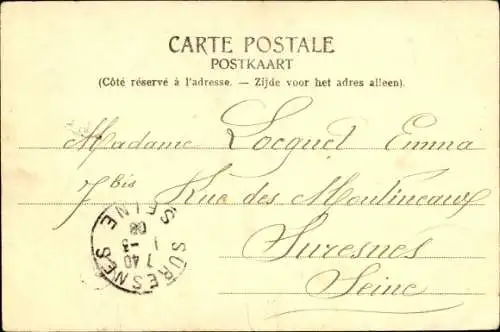 CARTE POSTALE
POSTKAART
(Côté réservé à l'adresse. — Zijde voor het adres alleen).
Madame Locquet Emma
7 bis Rue des Moulineaux
Suresnes
Seine
SURESNES
7 40
1 -3
08
SEINE